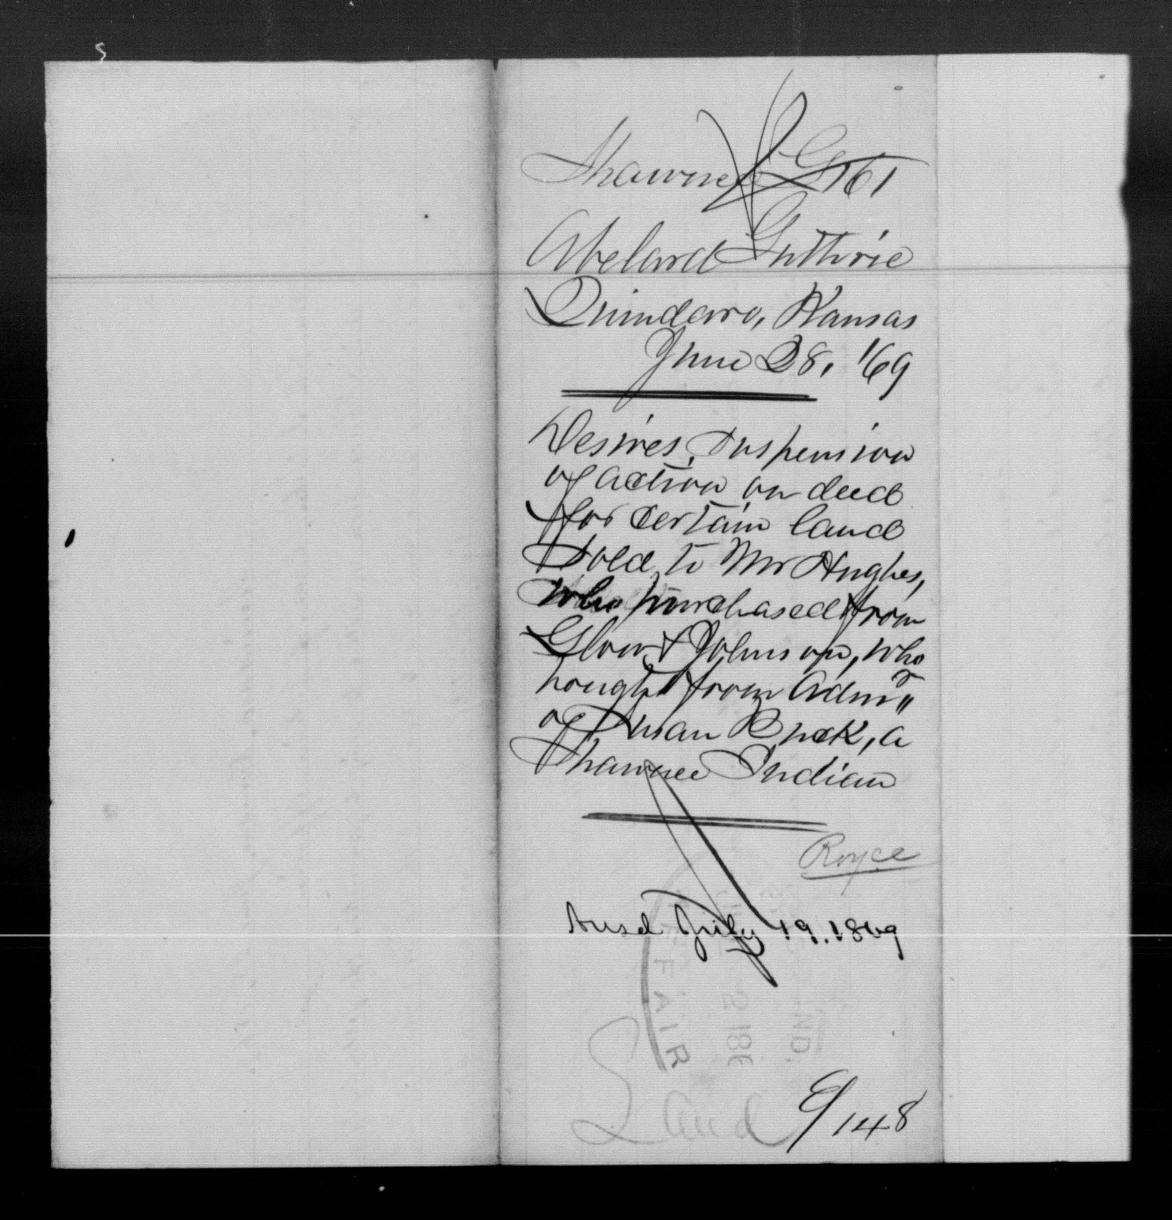 Shawnee G 161
Abelard Guthrie
Quindaro, Kansas
June 28, '69
Desires suspension
of action on deed
for certain land
sold to Mr Hughes,
who purchased from
& Johnson, who
bought from Admr
of Susan Buck, a
Shawnee Indian
Royce
Ansd July 19. 1869
IND.
2 186
FAIR
Land
148